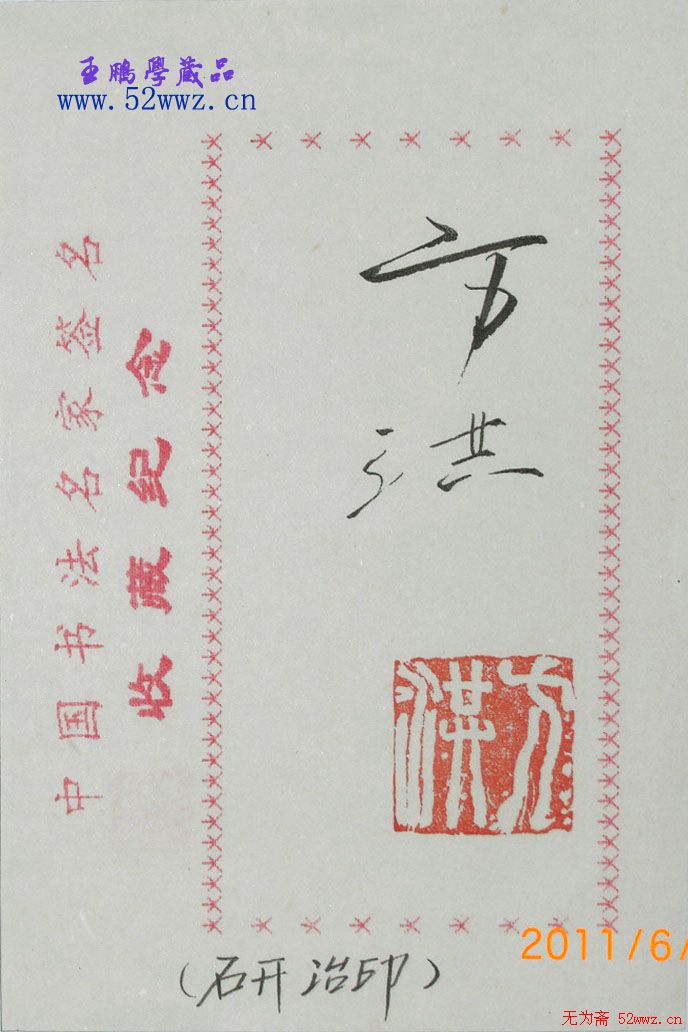 王鹏學藏品
www.52wwz.cn
中国书法名家签名
收藏纪念
方洪
方洪
（石开治印）
2011/6/
无为斋 52wwz.cn